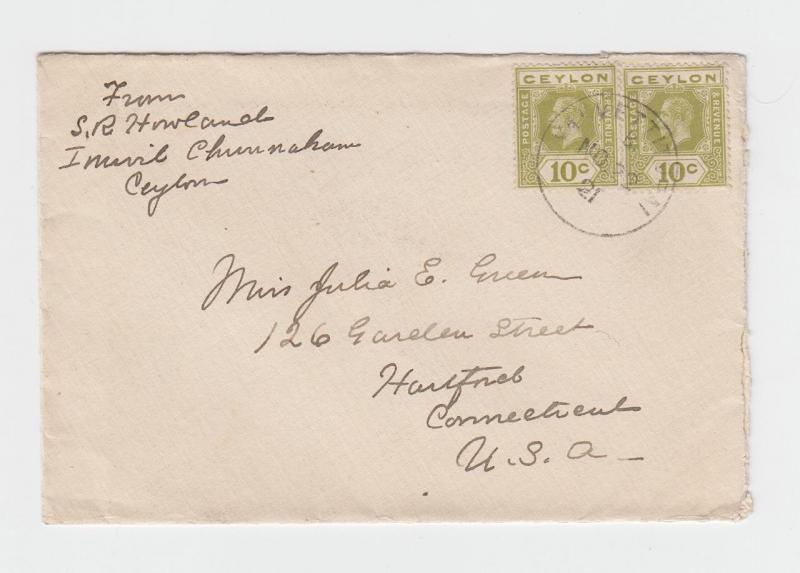 From
S. R Howland
Inuvil Chunnakam
Ceylon
CEYLON
POSTAGE & REVENUE
10 C
CEYLON
POSTAGE & REVENUE
10 C
NO 23
21
Miss Julia E. Green
126 Garden Street
Hartford
Connecticut
U. S. A